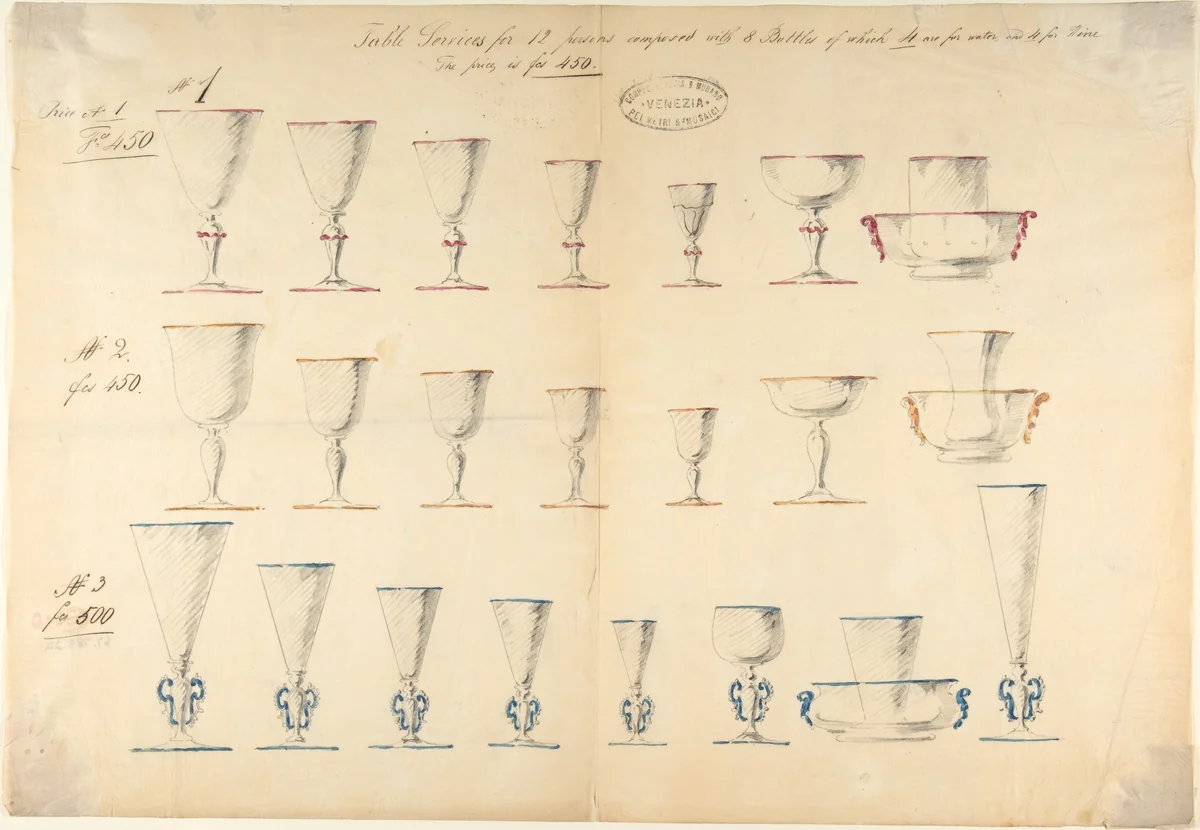 Table Services for 12 persons composed with 8 Bottles of which 4 are for water and 4 for Wine
The price is fcs 450.
No 1
Price No 1
Fcs 450
VENEZIA & MURANO
VENEZIA
PEI VETRI & MOSAICI
No 2.
fcs 450.
No 3
fcs 500